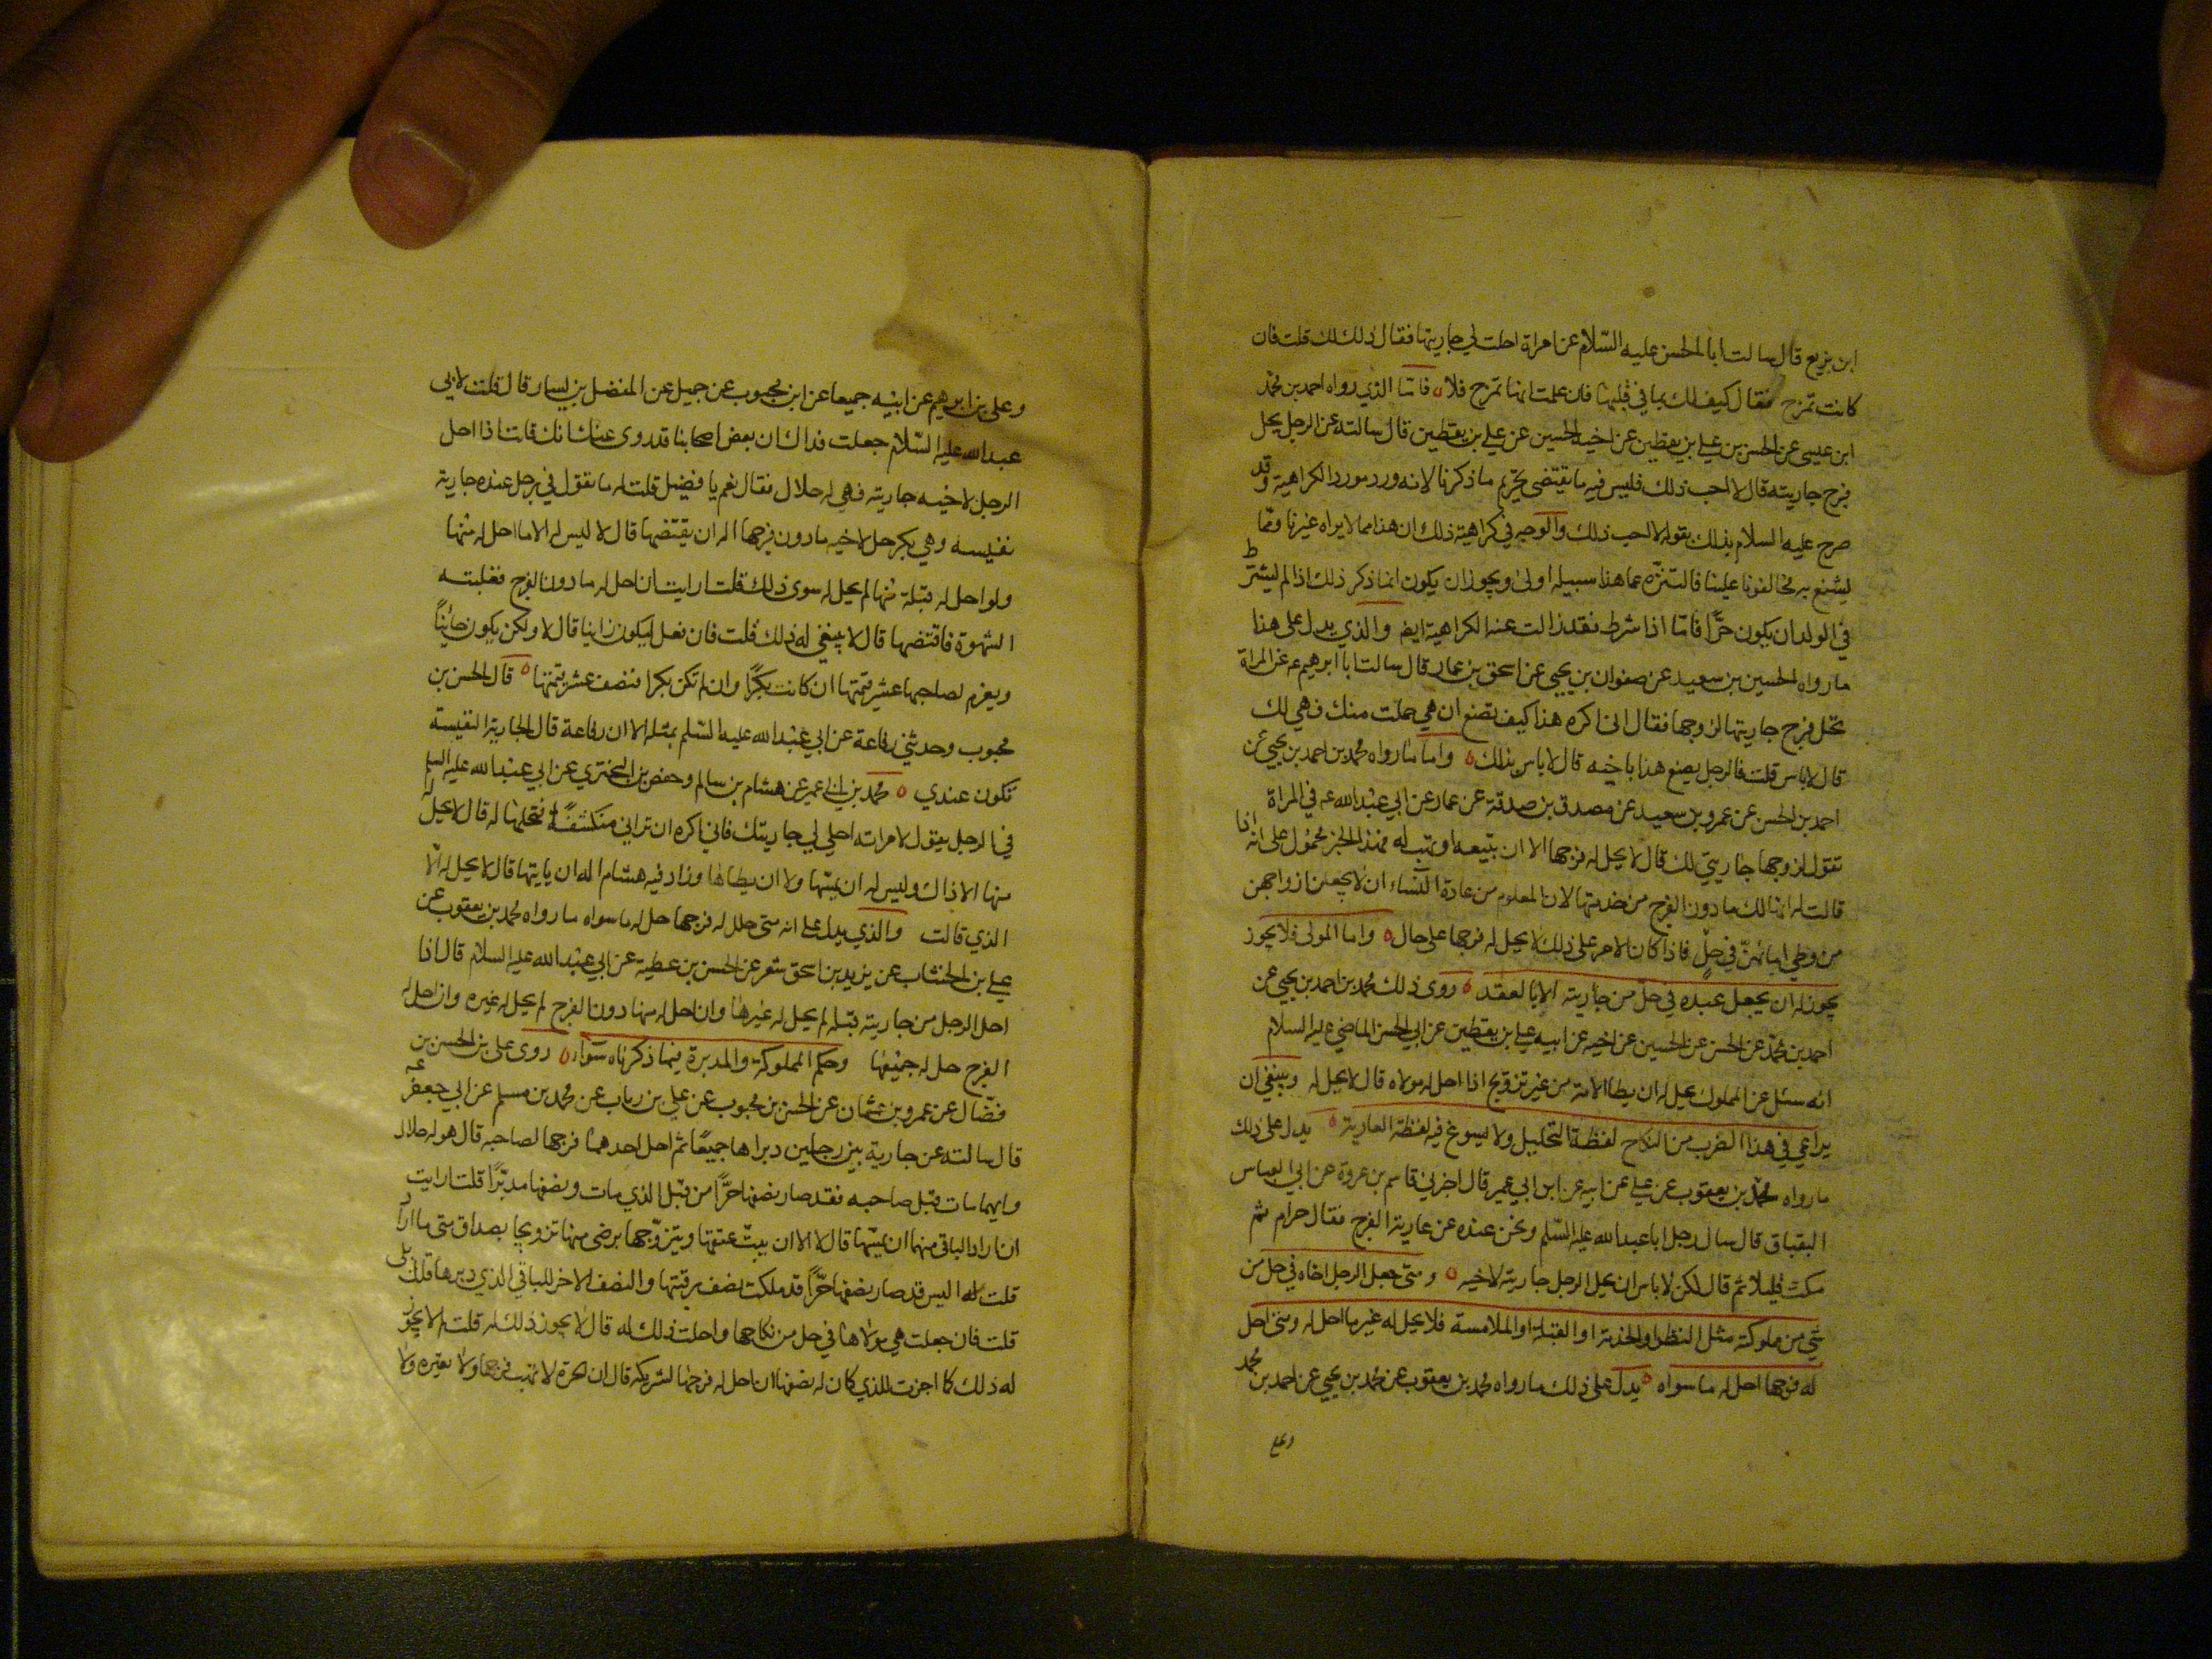 ابن بزيع قال سالت ابا الحسن عليه السّلام عن امراة احلت لي جاريتها فقال ذلك لك قلت فان
كانت تمزح فقال كيف لك بما في قلبها فان علمت انها تمزح فلا فامّا الذي رواه احمد بن محمّد
ابن عيسى عن الحسن بن علي بن يقطين عن اخيه الحسين عن علي بن يقطين قال سالته عن الرجل يحل
فرج جاريته قال لا احب ذلك فليس فيه ما يقتضي تحريم ما ذكرنا لانه ورد مورد الكراهية وقد
صرح عليه السلام بذلك بقوله لا احب ذلك والوجه في كراهية ذلك ان هذا مما لا يراه غيرنا وممّا
يشنع به مخالفونا علينا فالتنزّه عما هذا سبيله اولى ويجوز ان يكون انما ذكر ذلك اذا لم يشترط
في الولد ان يكون حرًّا فامّا اذا شرط فقد زالت عنه الكراهية ايض والذي يدل على هذا
ما رواه الحسين بن سعيد عن صفوان بن يحيى عن اسحق بن عمار قال سالت ابا ابرهيم ع عن المراة
تحل فرج جاريتها لزوجها فقال اني اكره هذا كيف تصنع ان هي حملت منك فهي لك
قال لا باس قلت فالرجل يصنع هذا باخيه قال لا باس بذلك واما ما رواه محمد بن احمد بن يحيى عن
احمد بن الحسن عن عمرو بن سعيد عن مصدق بن صدقة عن عمار عن ابي عبد الله ع في المراة
تقول لزوجها جاريتي لك قال لا يحل له فرجها الا ان تبيعه او تهب له فهذا الخبر محمول على انه اذا
قالت له انها لك ما دون الفرج من خدمتها لان المعلوم من عادة النساء ان لا يجعلن ازواجهن
من وطي امائهنّ في حلّ فاذا كان الامر على ذلك لا يحل له فرجها على حال واما المولى فلا يجوز
يجوز له ان يجعل عبده في حلّ من جاريته الا بالعقد روى ذلك محمد بن احمد بن يحيى عن
احمد بن محمّد عن الحسن عن الحسين عن اخيه عن ابيه علي بن يقطين عن ابي الحسن الماضي عليه السلام
انه سئل عن المملوك يحل له ان يطا الامة من غير تزويج اذا احل له مولاه قال لا يحل له وينبغي ان
يراعي في هذا الضرب من النكاح لفظة التحليل ولا يسوغ فيه لفظة العارية يدل على ذلك
ما رواه محمّد بن يعقوب عن علي عن ابيه عن ابن ابي عمير قال اخبرني قاسم بن عروة عن ابي العباس
البقباق قال سال رجل ابا عبد الله عليه السّلم ونحن عنده عن عارية الفرج فقال حرام ثم
مكث قليلا ثم قال لكن لا باس ان يحل الرجل جاريته لاخيه ومتى جعل الرجل اخاه في حل من
شي من مملوكته مثل النظر او الخدمة او القبلة او الملامسة فلا يحل له غير ما احل له ومتى احل
له فرجها احل له ما سواه يدل على ذلك ما رواه محمد بن يعقوب عن محمد بن يحيى عن احمد بن محمد
وعلي
وعلي بن ابرهيم عن ابيه جميعا عن ابن محبوب عن جميل عن المفضل بن يسار قال قلت لابي
عبد الله عليه السّلام جعلت فداك ان بعض اصحابنا قد روى عنك انك قلت اذا احل
الرجل لاخيه جاريته فهي له حلال فقال نعم يا فضيل قلت له ما تقول في رجل عنده جارية
نفيسه وهي بكر حل لاخيه ما دون فرجها اله ان يقتضها قال لا ليس له الا ما احل له منها
ولو احل له قبلة منها لم يحل له سوى ذلك قلت ارايت ان احل له ما دون الفرج فغلبته
الشهوة فاقتضها قال لا ينبغي له ذلك قلت فان فعل ايكون زانيا قال لا ولكن يكون خائنًا
ويغرم لصاحبها عشر قيمتها ان كانت بكرًا وان لم تكن بكرا فنصف عشر قيمتها قال الحسن بن
محبوب وحدثني رفاعة عن ابي عبد الله عليه السّلم بمثله الا ان رفاعة قال الجارية النفيسة
تكون عندي محمد بن ابي عمير عن هشام بن سالم وحفص بن البختري عن ابي عبد الله عليه السلم
في الرجل يقول لامراته احلي لي جاريتك فاني اكره ان تراني منكشفًا فتحلها له قال لا يحل له
منها الا ذاك وليس له ان يمسّها ولا ان يطاها وزاد فيه هشام اله ان ياتيها قال لا يحل له الّا
الذي قالت والذي يدل على انه متى حلل له فرجها حل له ما سواه ما رواه محمد بن يعقوب عن
علي بن الخشاب عن يزيد بن اسحق شعر عن الحسن بن عطية عن ابي عبد الله عليه السلام قال اذا
احل الرجل من جاريته قبله لم يحل له غيرها وان احل له منها دون الفرج لم يحل له غيره وان احل له
الفرج حل له جميعها وحكم المملوكة والمدبرة فيما ذكرناه سواء روى علي بن الحسن بن
فضّال عن عمرو بن عثمان عن الحسن بن محبوب عن علي بن رياب عن محمد بن مسلم عن ابي جعفر ع
قال سالته عن جارية بين رجلين دبراها جميعًا ثم احل احدهما فرجها لصاحبه قال هو له حلال
وايهما مات قبل صاحبه فقد صار نصفها حرًّا من قبل الذي مات ونصفها مدبّرًا قلت ارايت
ان اراد الباقي منهما ان يمسّها قال لا الا ان يبتّ عتقها ويتزوّجها برضى منها تزويجا بصداق متى ما اراد
قلت له اليس قد صار نصفها حرًّا قد ملكت نصف رقبتها والنصف الاخر للباقي الذي دبرها قال بلى
قلت فان جعلت هي مولاها في حل من نكاحها واحلت ذلك له قال لا يجوز ذلك له قلت له لم لا يجوز
له ذلك كما اجزت للذي كان له نصفها ان احل له فرجها لشريكه قال ان الحرة لا تهب فرجها ولا تعيره ولا